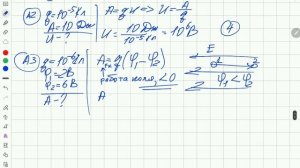 A2
q=10⁻⁵ Кл
A=10 Дж
U-?
A=qU => U=A/q
U=10 Дж/10⁻⁵ Кл=10⁶ В
4
A3
φ₂=6В
A-?
A=q(φ₁-φ₂)
работа поля, <0
A
E
φ₁<φ₂